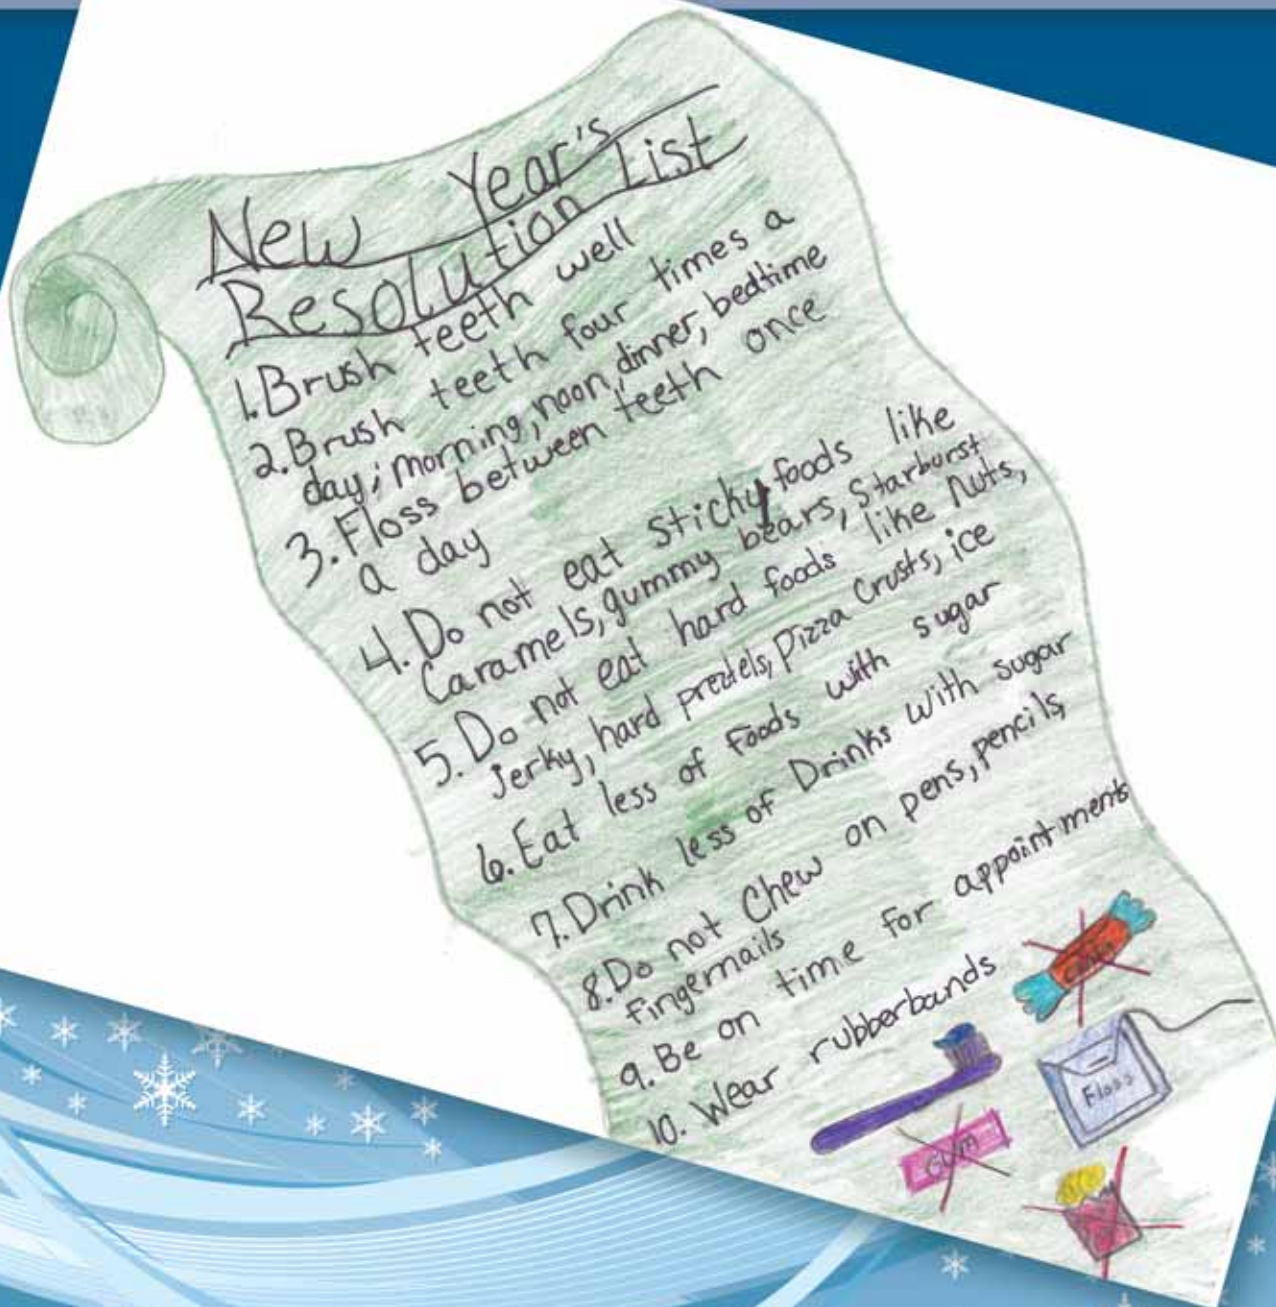 New Year's
Resolution List
1. Brush teeth well
2. Brush teeth four times a
day; morning, noon, dinner, bedtime
3. Floss between teeth once
a day
4. Do not eat sticky foods like
Caramels, gummy bears, Starburst
5. Do not eat hard foods like Nuts,
Jerky, hard pretels, Pizza Crusts, ice
6. Eat less of Foods with sugar
7. Drink less of Drinks with sugar
8. Do not Chew on pens, pencils,
Fingernails
9. Be on time for appointments
10. Wear rubberbands
Floss
GUM